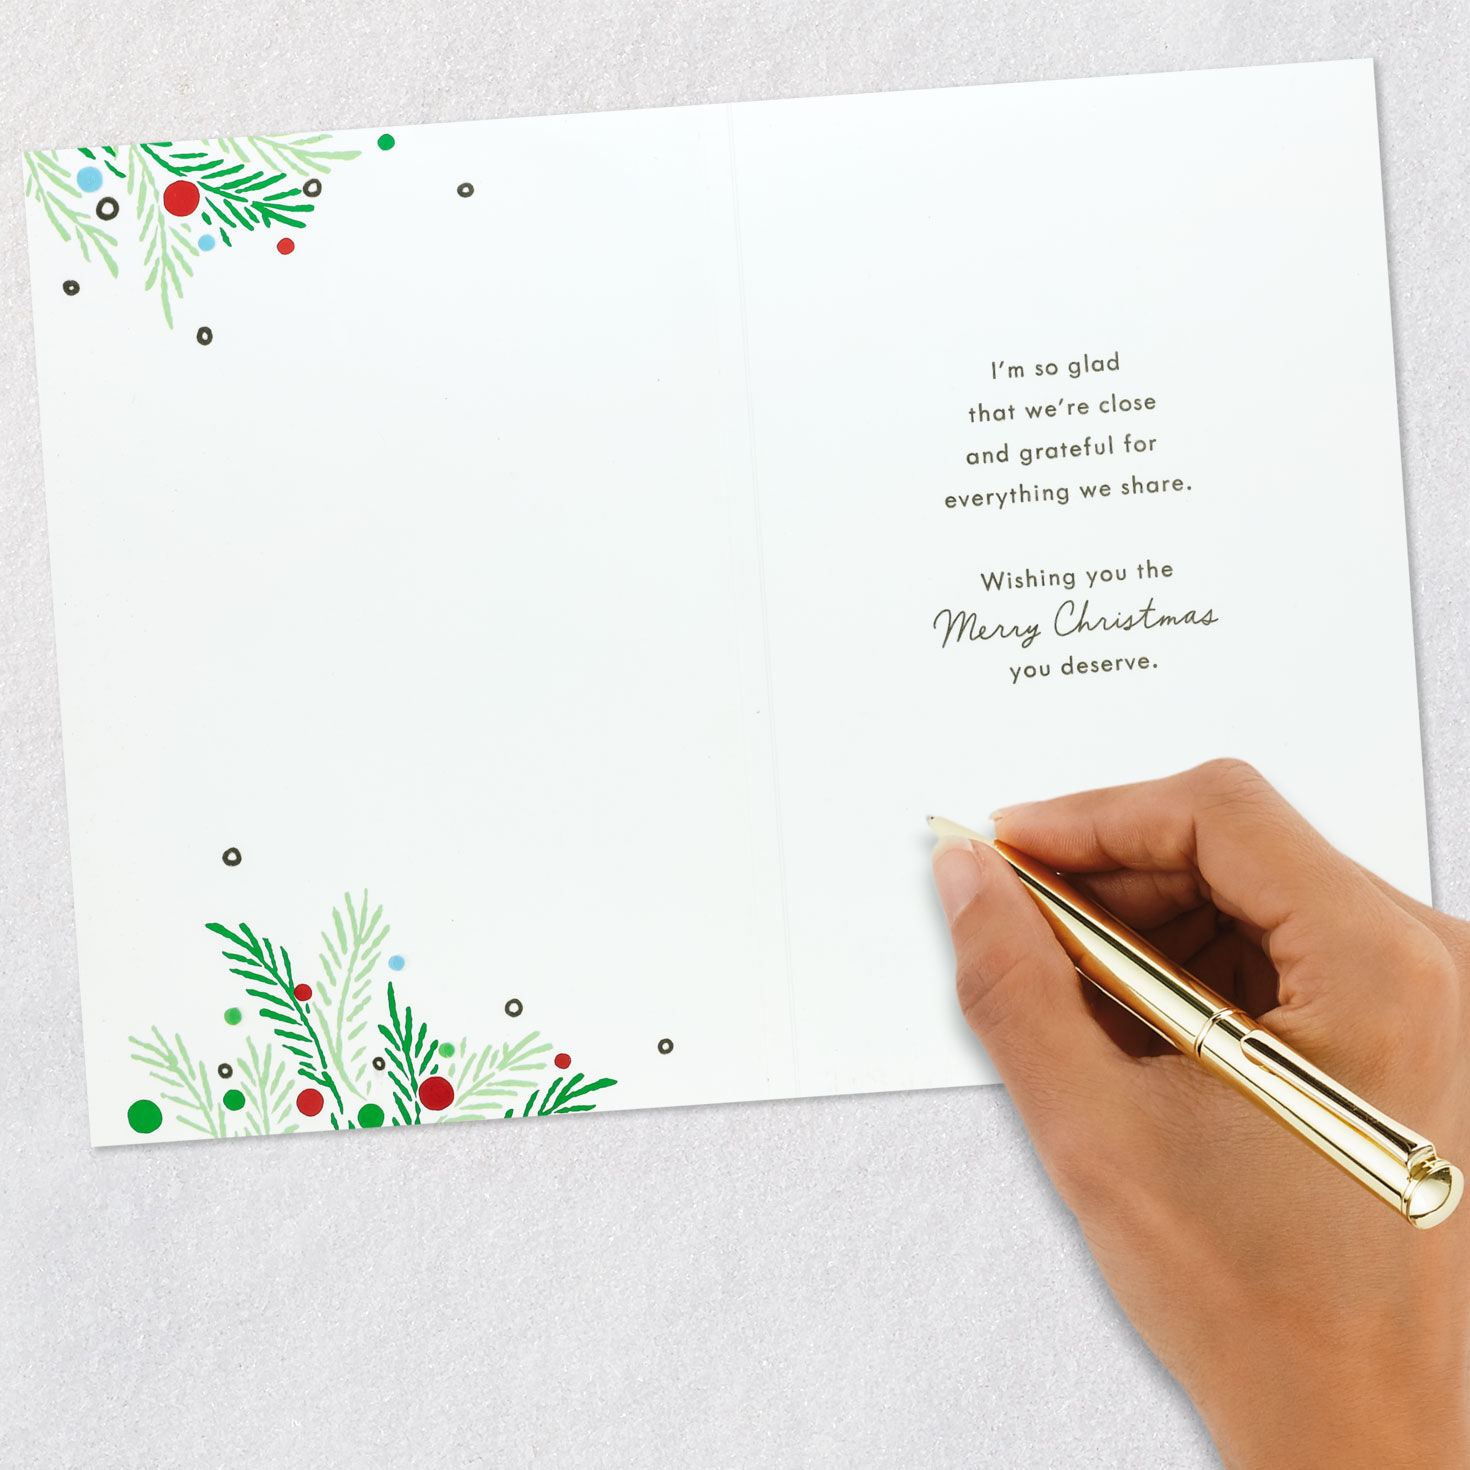 I'm so glad
that we're close
and grateful for
everything we share.
Wishing you the
Merry Christmas
you deserve.